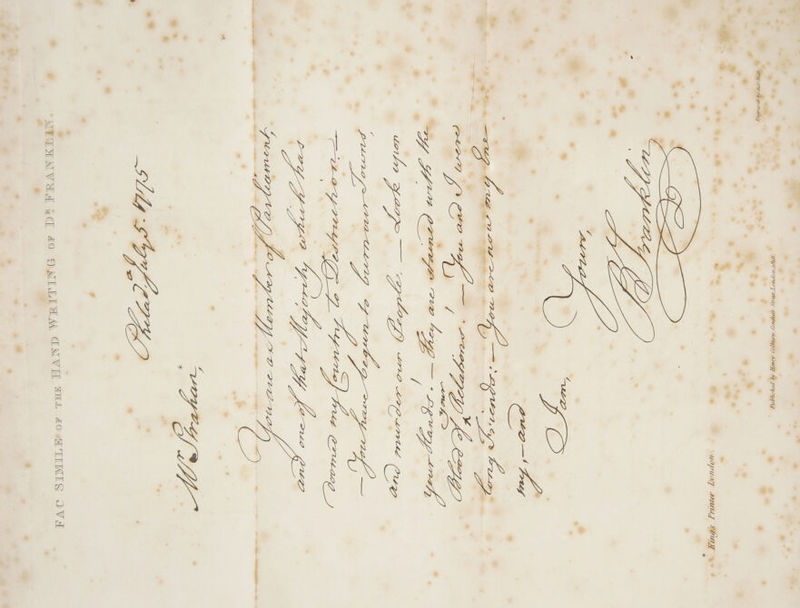 FAC SIMILE OF THE HAND WRITING OF DR. FRANKLIN.
Philad.a July 5. 1775
Mr Strahan,
You are a Member of Parliament,
and one of that Majority which has
doomed my Country to Destruction.—
—You have begun to burn our Towns,
and murder our People. — Look upon
your Hands! — They are stained with the
Blood of your Relations! — You and I were
long Friends: — You are now my Ene-
my, — and
I am,
Yours,
B Franklin
King's Printer London
Published by Henry Colburn